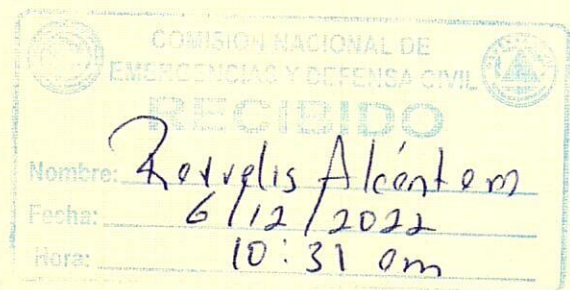 COMISION NACIONAL DE
EMERGENCIAS Y DEFENSA CIVIL
RECIBIDO
Nombre: Alcántara
Fecha: 6/12/2022
Hora: 10:31 am